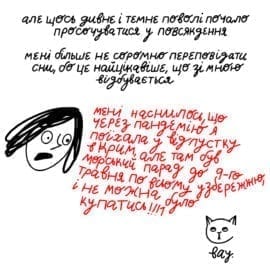 але щось дивне і темне поволі почало
просочуватися у повсякдення
мені більше не соромно переповідати
сни, бо це найцікавіше, що зі мною
відбувається
мені наснилось, що
через пандемію я
поїхала у відпустку
в Крим, але там був
морський парад до 9-го
травня по всьому узбережжю,
і не можна було
купатись!!!1
вау.